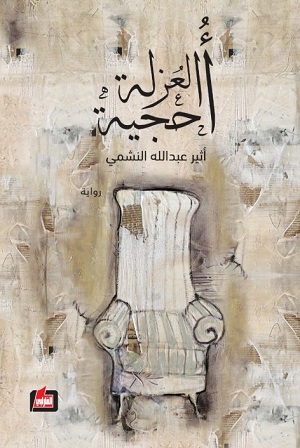 العُزلة
أُحجية
أثير عبدالله النشمي
رواية
الفارابي